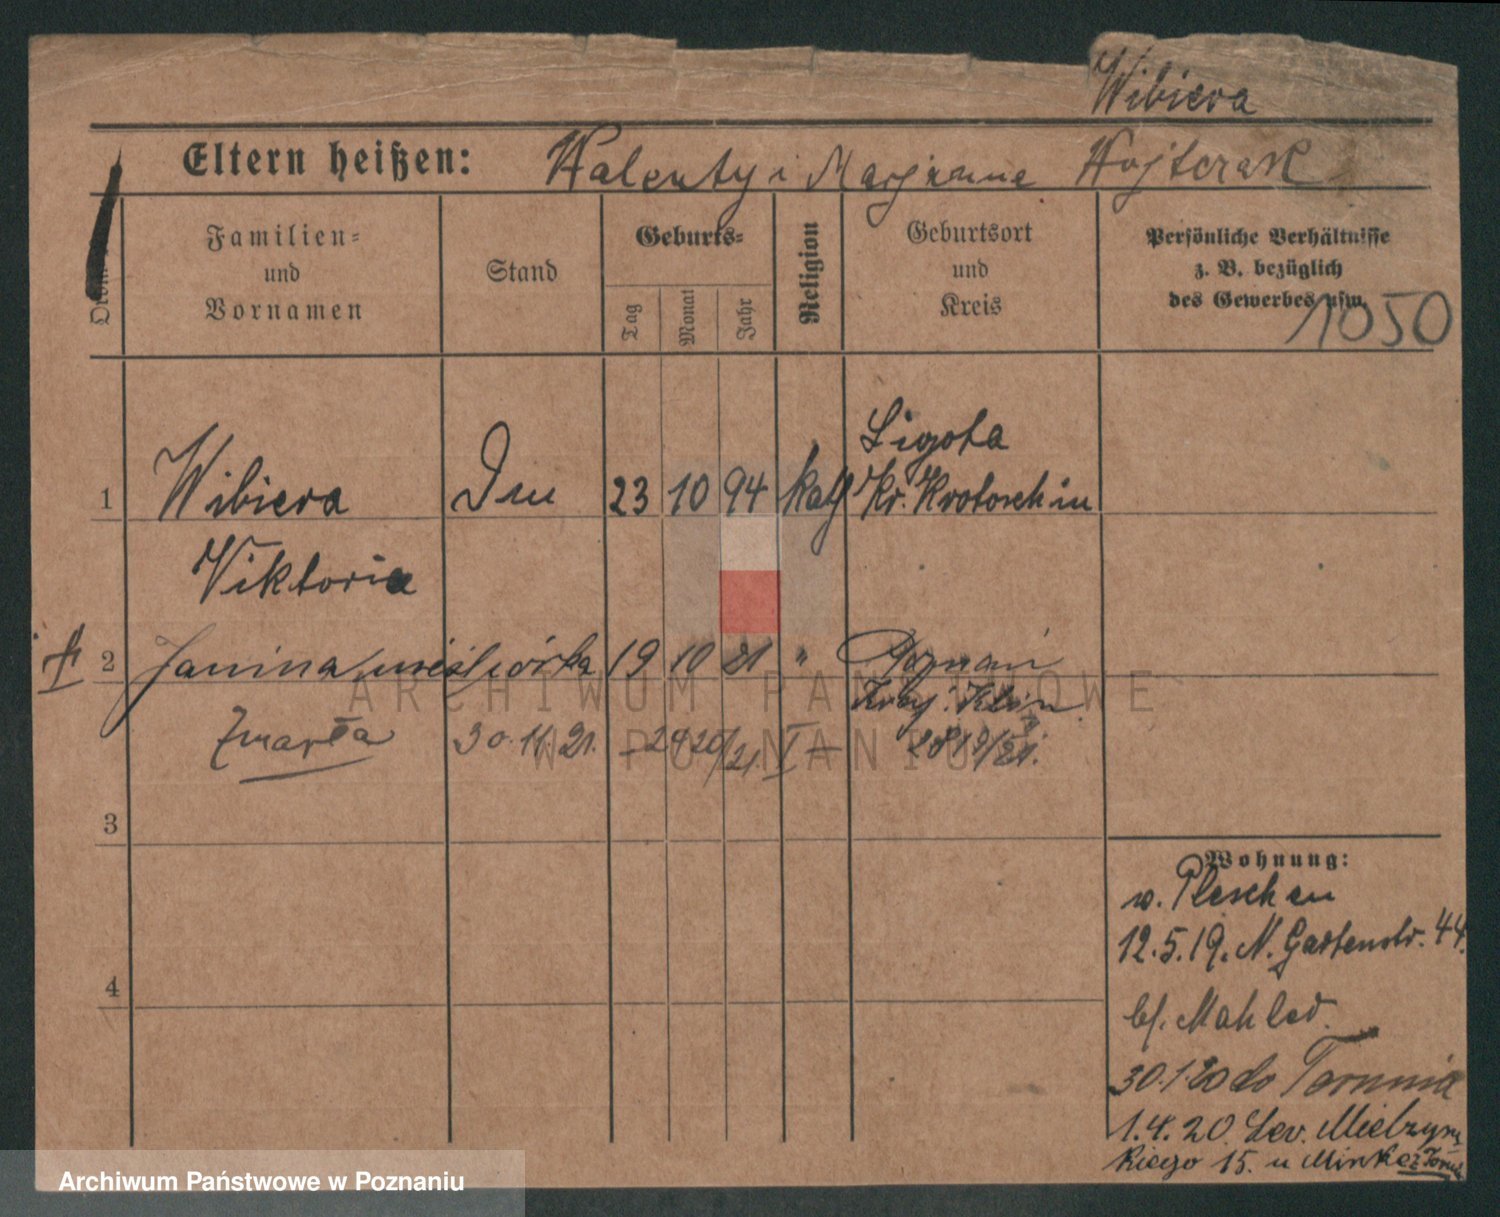 Wibiera
Eltern heißen: Walenty i Marjanna Wojtczak
Familien- und Vornamen
Stand
Geburts-
Tag
Monat
Jahr
Religion
Geburtsort und Kreis
Persönliche Verhältnisse
z. B. bezüglich
des Gewerbes usw.
1050
1 Wibiera 23 10 94 kath Ligota
Kr. Krotoschin
Viktoria
2 Janina nieślubna córka 19 10 21 " Poznań
Zmarła 30.11.21. 2819/21.
3
4
Wohnung:
v. Pleschen
12.5.19. N. Gartenstr. 44.
bf. Mahler
30.1.20 do Torunia
1.4.20 Mielżyńs
kiego 15. u
ARCHIWUM PAŃSTWOWE
W POZNANIU
Archiwum Państwowe w Poznaniu